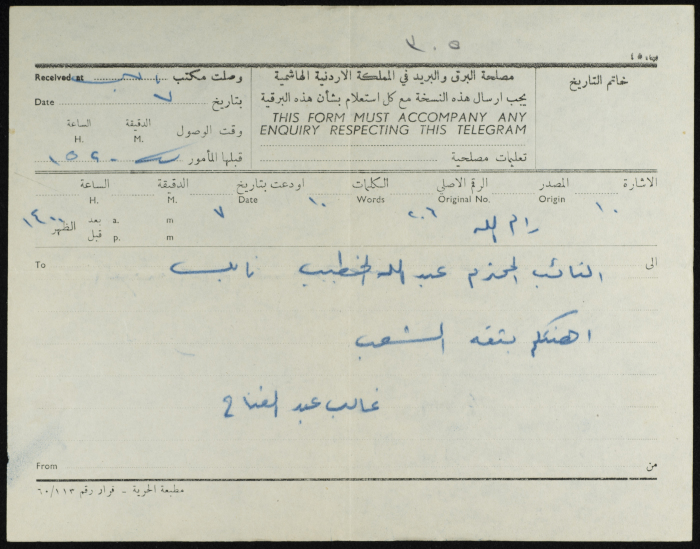 ٣٠٥
مصلحة البرق والبريد في المملكة الاردنية الهاشمية
يجب ارسال هذه النسخة مع كل استعلام بشأن هذه البرقية
THIS FORM MUST ACCOMPANY ANY
ENQUIRY RESPECTING THIS TELEGRAM
تعليمات مصلحية
خاتم التاريخ
Received at وصلت مكتب نابلس
Date بتاريخ ٧
وقت الوصول الدقيقة الساعة
M. H.
قبلها المأمور ١٥٢٠
الاشارة المصدر الرقم الاصلي الكلمات اودعت بتاريخ الدقيقة الساعة
Origin Original No. Words Date M. H.
١٠ رام الله ٢٠٦ ١٠ ٧ ١٤٠٠
بعد a. m
قبل p. m
الظهر
الى النائب المحترم عبد الله الخطيب نابلس To
اهنئكم بثقه الشعب
غالب عبد الفتاح
من From
مطبعة الحرية - قرار رقم ٦٠/١١٣